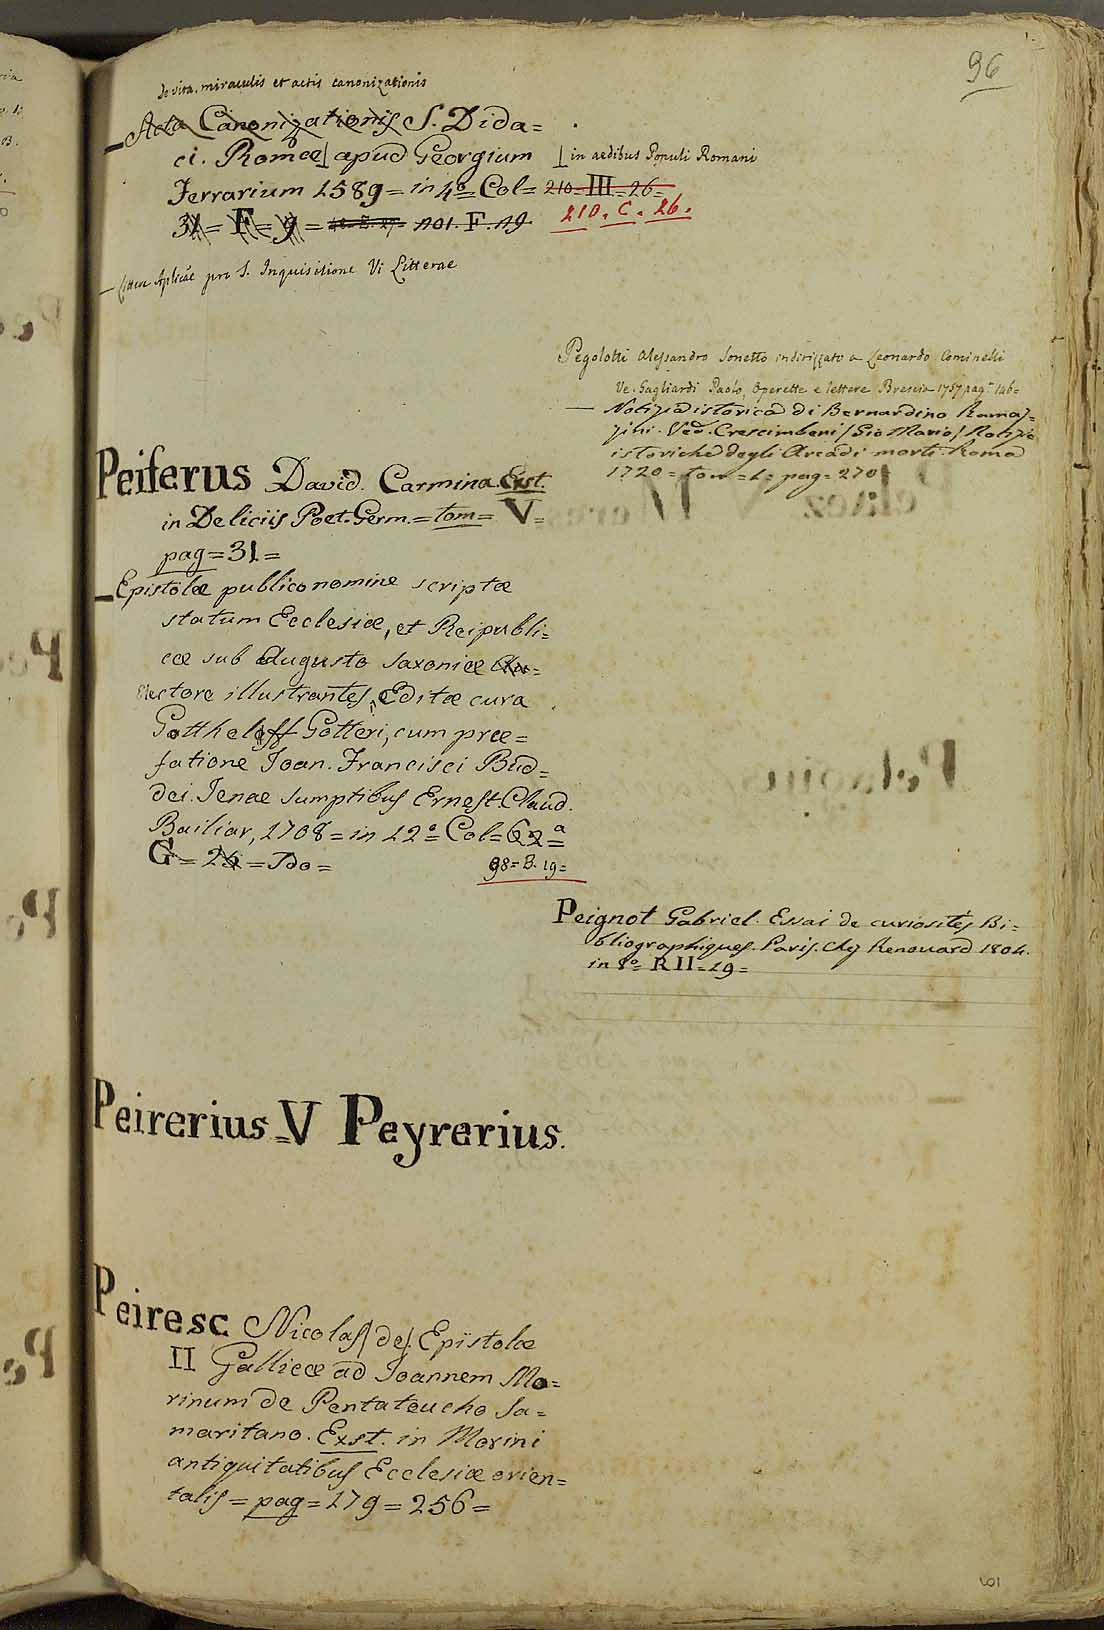 96
de vita, miraculis et actis canonizationis
– Acta Canonizationis S. Dida=
ci. Romæ | apud Georgium | in aedibus Populi Romani
Ferrarium 1589 = in 4º = Col = 210 = III = 26 =
210. C. 26.
31 = F = 9 = 101. F. 19
pro S. Inquisitione Vi Litterae
Pegolotti Alessandro Sonetto indirizzato a Leonardo Cominelli
Ve. Gagliardi Paolo, Operette e lettere Brescia 1757 pag. 146=
— Notizia istorica di Bernardino Ramaz=
zini. Ved. Crescimbeni / Gio Mario / Notizie
istoriche degli Arcadi morti. Roma
1720 = tom = 1 = pag = 270
Peiferus David. Carmina. Exst.
in Deliciis Poet. Germ. = tom = V =
pag = 31 =
– Epistolæ publico nomine scriptæ
statum Ecclesiæ, et Reipubli=
cæ sub Augusto Saxoniæ
Electore illustrantes, Editæ cura
Gotthelff Gotteri, cum præ=
fatione Joan. Francisci Bud=
dei. Jenae sumptibus Ernest. Claud.
Bailiar, 1708 = in 12º = Col = 62 = a
G = 26 = Do =
98 = B. 19 =
Peignot Gabriel. Essai de curiosités Bi=
bliographiques. Paris. Chez Renouard 1804.
in 8º = R II = 19 =
Peirerius = V Peyrerius.
Peiresc Nicolas / de /. Epistolæ
II Gallicæ ad Joannem Mo=
rinum de Pentateucho Sa=
maritano. Exst. in Morini
antiquitatibus Ecclesiæ orien=
talis = pag = 179 = 256 =